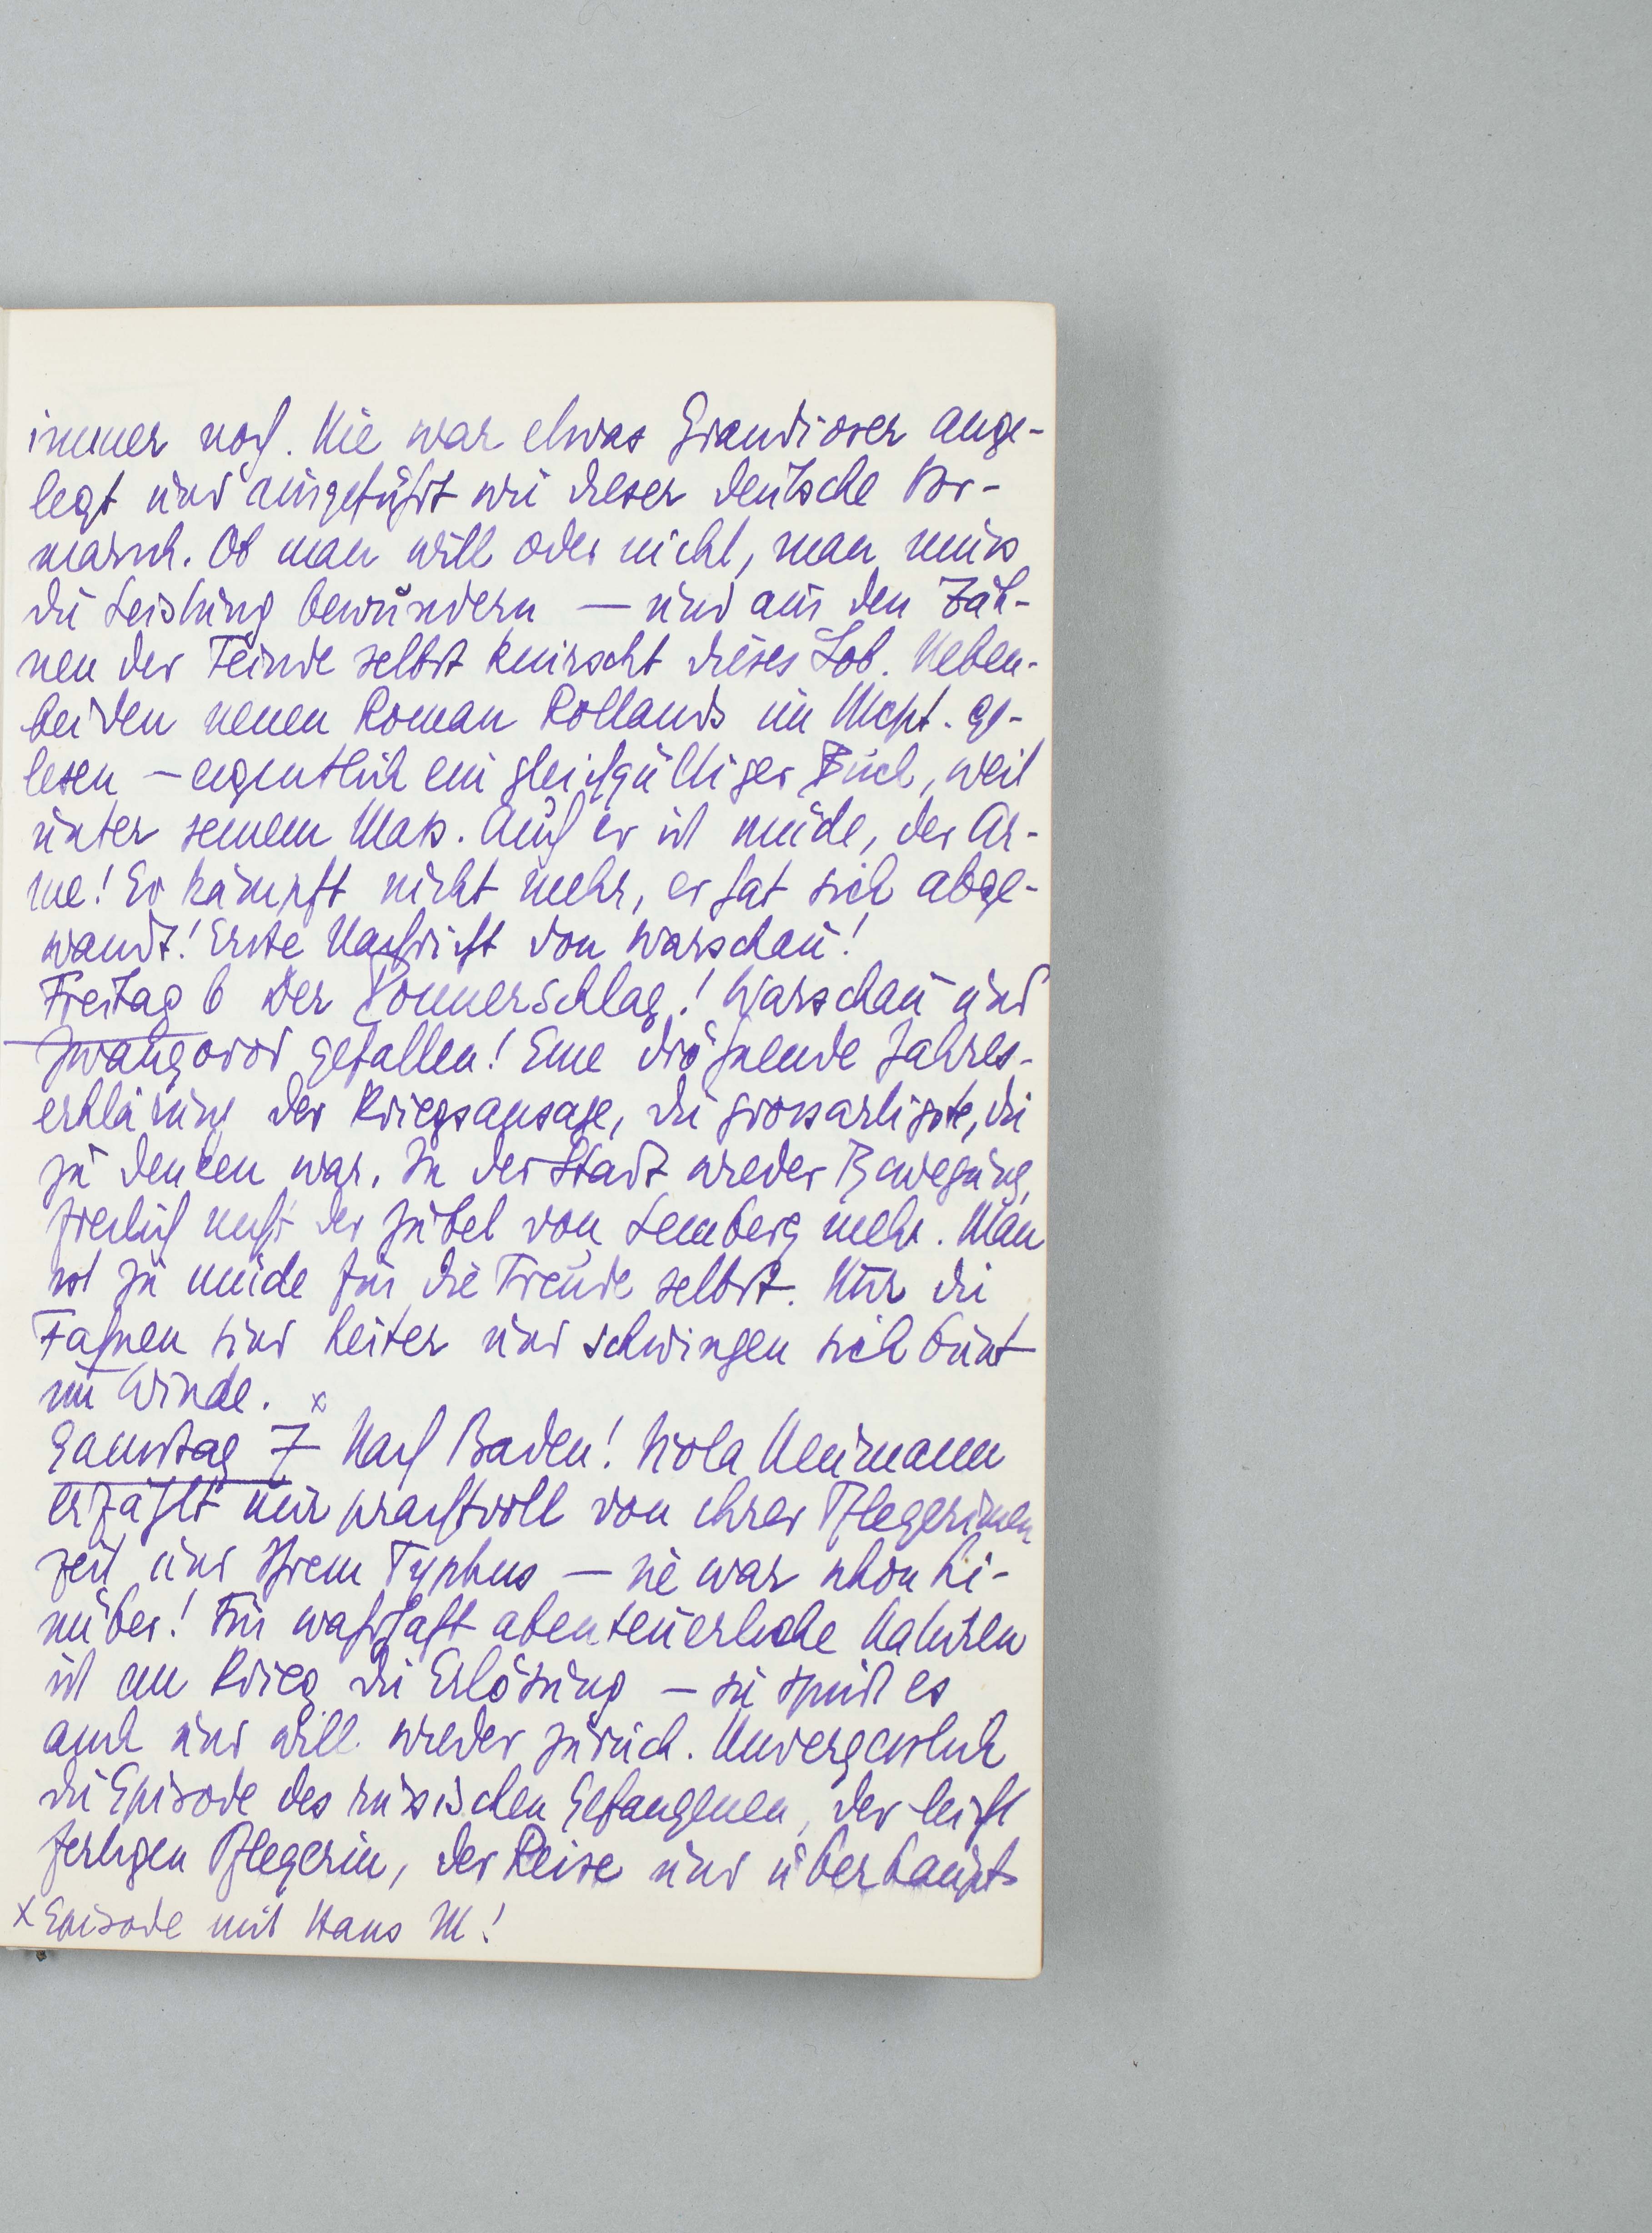 immer noch. Nie war etwas Grandioser ange-
legt und ausgeführt wie dieser deutsche Vor-
marsch. Ob man will oder nicht, man muss
die Leistung bewundern — und aus den Zäh-
nen der Feinde selbst knirscht dieses Lob. Neben-
bei den neuen Roman Rollands im Mcpt. ge-
lesen — eigentlich ein gleichgültiges Buch, weil
unter seinem Mass. Auch er ist müde, der Ar-
me! Er kämpft nicht mehr, er hat sich abge-
wandt! Erste Nachricht von Warschau!
Freitag 6 Der Donnerschlag! Warschau und
Iwangorod gefallen! Eine dröhnende Jahres-
erklärung der Kriegsansage, die grossartigste, die
zu denken war. In der Stadt wieder Bewegung,
freilich nicht der Jubel von Lemberg mehr. Man
ist zu müde für die Freude selbst. Nur die
Fahnen sind heiter und schwingen sich bunt
im Winde. x
Samstag 7 Nach Baden! Viola Neumann
erzählt mir prachtvoll von ihrer Pflegerinnen
zeit und ihrem Typhus — sie war schon hi-
nüber! Für wahrhaft abenteuerliche Naturen
ist ein Krieg die Erlösung — sie spürt es
auch und will wieder zurück. Unvergesslich
die Episode des russischen Gefangenen, der leicht
fertigen Pflegerin, der Reise und überhaupt
x Episode mit Hans M!